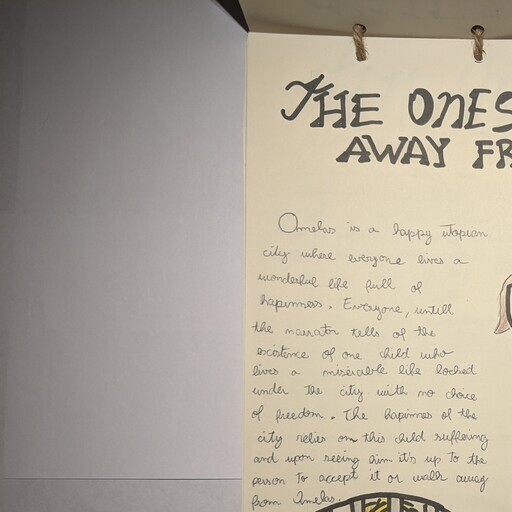 THE ONES
AWAY FR
Omelas is a happy utopian
city where everyone lives a
wonderful life full of
hapinness. Everyone, untill
the narrator tells of the
existence of one child who
lives a miserable life locked
under the city with no choice
of freedom. The hapinnes of the
city relies on this child suffering
and upon seeing him it's up to the
person to accept it or walk away
from Omelas.